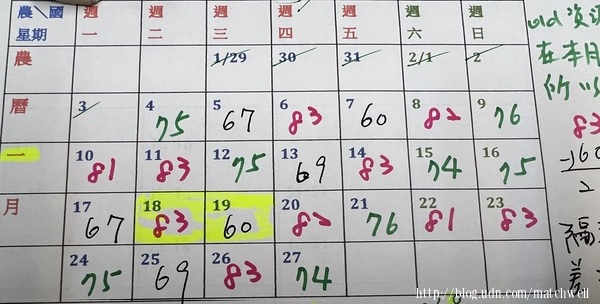 農\國 週 週 週 週 週 週 週
星期 一 二 三 四 五 六 日
農 1/29 30 31 2/1 2
曆 3 4 5 6 7 8 9
75 67 83 60 82 76
一 10 11 12 13 14 15 16
81 83 75 69 83 74 75
月 17 18 19 20 21 22 23
67 83 60 82 76 81 83
24 25 26 27
75 69 83 74
在本月
所以
83
-)60
2
隔
http://blog.udn.com/matchwell